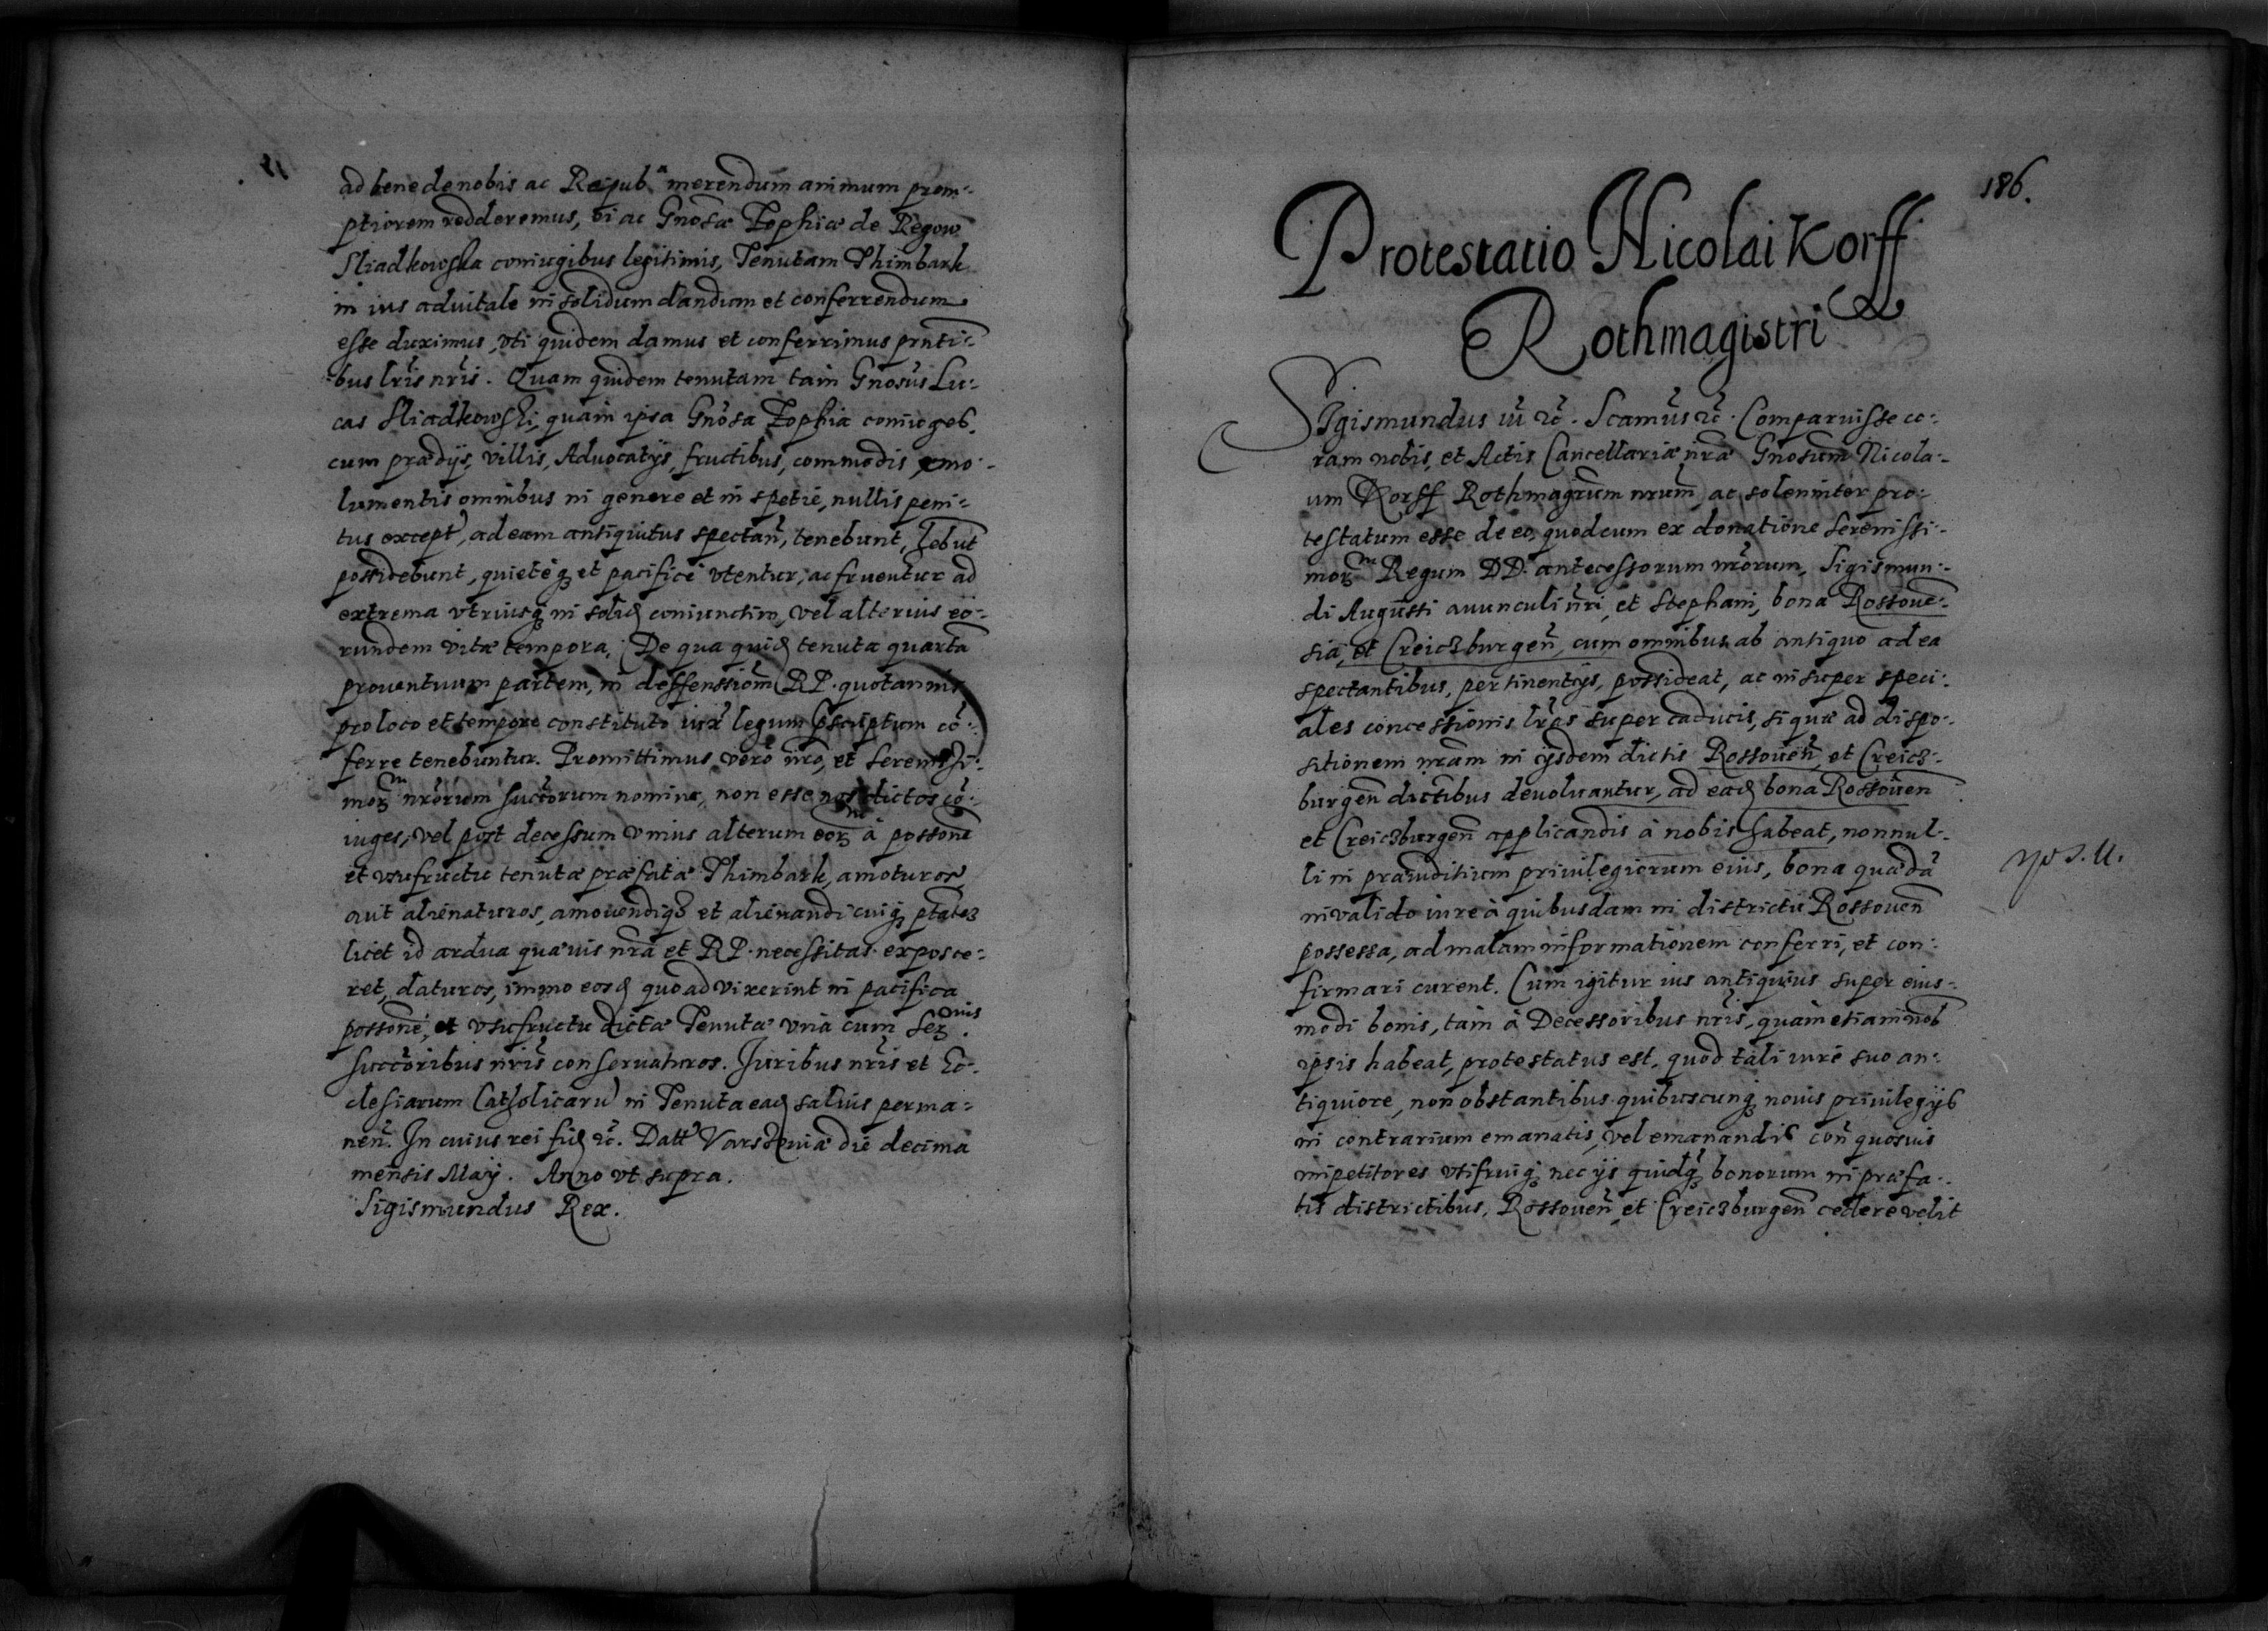 ad bene de nobis ac Repub.ᵃ merendum animum prom-
ptiorem redderemus, ei ac Gnosæ Zophiæ de Regow
Sliadkowska coniugibus legitimis, Tenutam Thimbark
in ius aduitale in solidum dandum et conferrendum
esse duximus, vti quidem damus et conferrimus pñti-
bus lris nris. Quam quidem tenutam tam Gnosus Lu-
cas Sliadkowski, quam ipsa Gnosa Zophia coniuges,
cum prædijs, villis, Aduocatijs, fructibus, commodis, emo-
lumentis omnibus in genere et in spetie, nullis peni-
tus except, ad eam antiquitus spectañ, tenebunt, hebut
possidebunt, quietèq; et pacificè vtentur, ac fruentur ad
extrema vtriusq; in solid coniunctim, vel alterius eo-
rundem vitæ tempora. De qua quid tenuta quartã
prouentuum partem, in deffensiom RP. quotannis
pro loco et tempore constituto iux legum pscriptum cõ-
ferre tenebuntur. Promittimus verò nro, et Serenissi-
morᵐ nrorum succorum nomine, non esse nos dictos cõ-
iuges, vel post decessum vnius alterum eorᵐ à possone
et vsufructu tenutæ præfatæ Thimbark, amoturos
aut alienaturos, amouendiqȝ et alienandi cuiq; ptatẽ
licet id ardua quæuis nra et RP. necessitas exposce-
ret, daturos, immo eosd quoad vixerint in pacifica
possone, et vsufructu dictæ Tenutæ vnà cum Serᵐⁱˢ.
succoribus nris conseruaturos. Iuribus nris et Ec-
clesiarum Catholicaru in Tenuta ead saluis perma-
neñ. In cuius rei fid &c. Datt Varsouiæ die decima
mensis Maij. Anno vt supra.
Sigismundus Rex.
186.
Protestatio Nicolai Korff
Rothmagistri
Sigismundus iii &c. Scamus &c. Comparuisse co-
ram nobis, et Actis Cancellariæ nræ Gnosum Nicola-
um Korff Rothmagrum nrum, ac solenniter pro-
testatum esse de eo, quod cum ex donatione Serenissi-
morᵐ Regum DD. antecessorum nrorum, Sigismun-
di Augusti auunculi nri, et Stephani, bona Rossoue-
sia, et Creiczburgeñ, cum omnibus ab antiquo ad ea
spectantibus, pertinentijs, possideat, ac insuper speci-
ales concessionis lras super caducis, si quæ ad dispo-
sitionem nram in ijsdem dictis Rossoueñ, et Creicz-
burgeñ dictibus deuoluantur, ad ead bona Rossoueñ
et Creiczburgeñ applicandis à nobis habeat, nonnul-
li in præiuditium priuilegiorum eius, bona quædã
inualido iure à quibusdam in districtu Rossoueñ
possessa, ad malam informationem conferri, et con-
firmari curent. Cum igitur ius antiquius super eius-
modi bonis, tam à Decessoribus nris, quam etiam nob
ipsis habeat, protestatus est, quod tali iure suo an-
tiquiore, non obstantibus quibuscunq; nouis priuilegijs
in contrarium emanatis, vel emanandis coñ quosuis
impetitores vti fruiq; nec ijs quidq; bonorum in præfa-
tis districtibus, Rossoueñ et Creiczburgeñ cedere velit